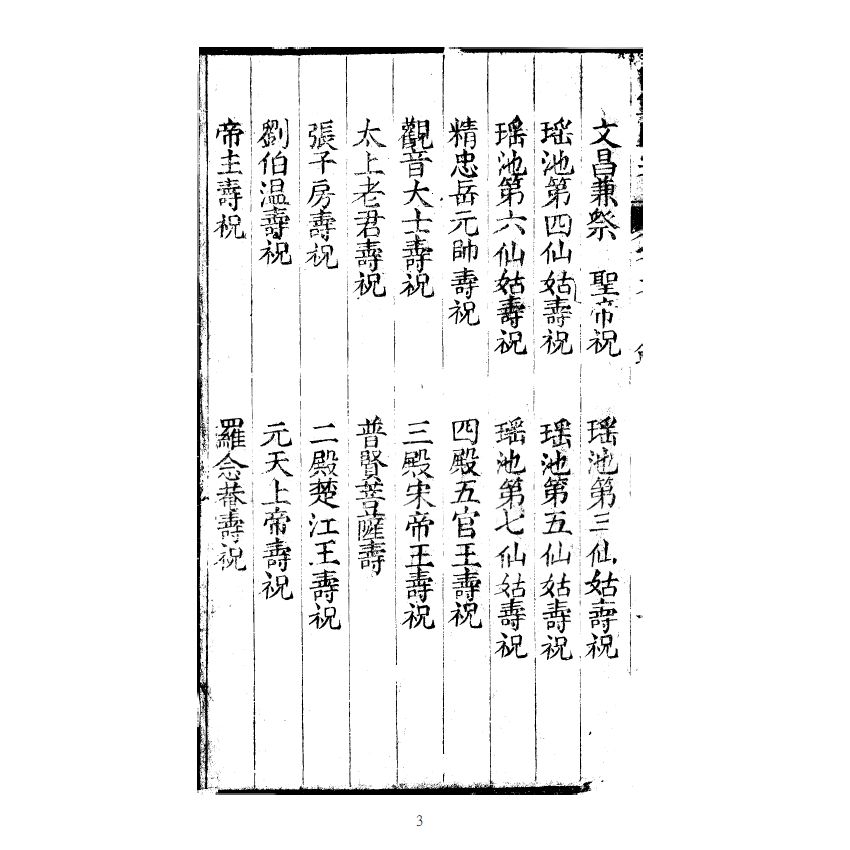 文昌兼祭　聖帝祝　瑶池第三仙姑壽祝
瑶池第四仙姑壽祝　瑶池第五仙姑壽祝
瑶池第六仙姑壽祝　瑶池第七仙姑壽祝
精忠岳元帥壽祝　四殿五官王壽祝
觀音大士壽祝　三殿宋帝王壽祝
太上老君壽祝　普賢菩薩壽
張子房壽祝　二殿楚江王壽祝
劉伯温壽祝　元天上帝壽祝
帝主壽祝　羅念菴壽祝
3